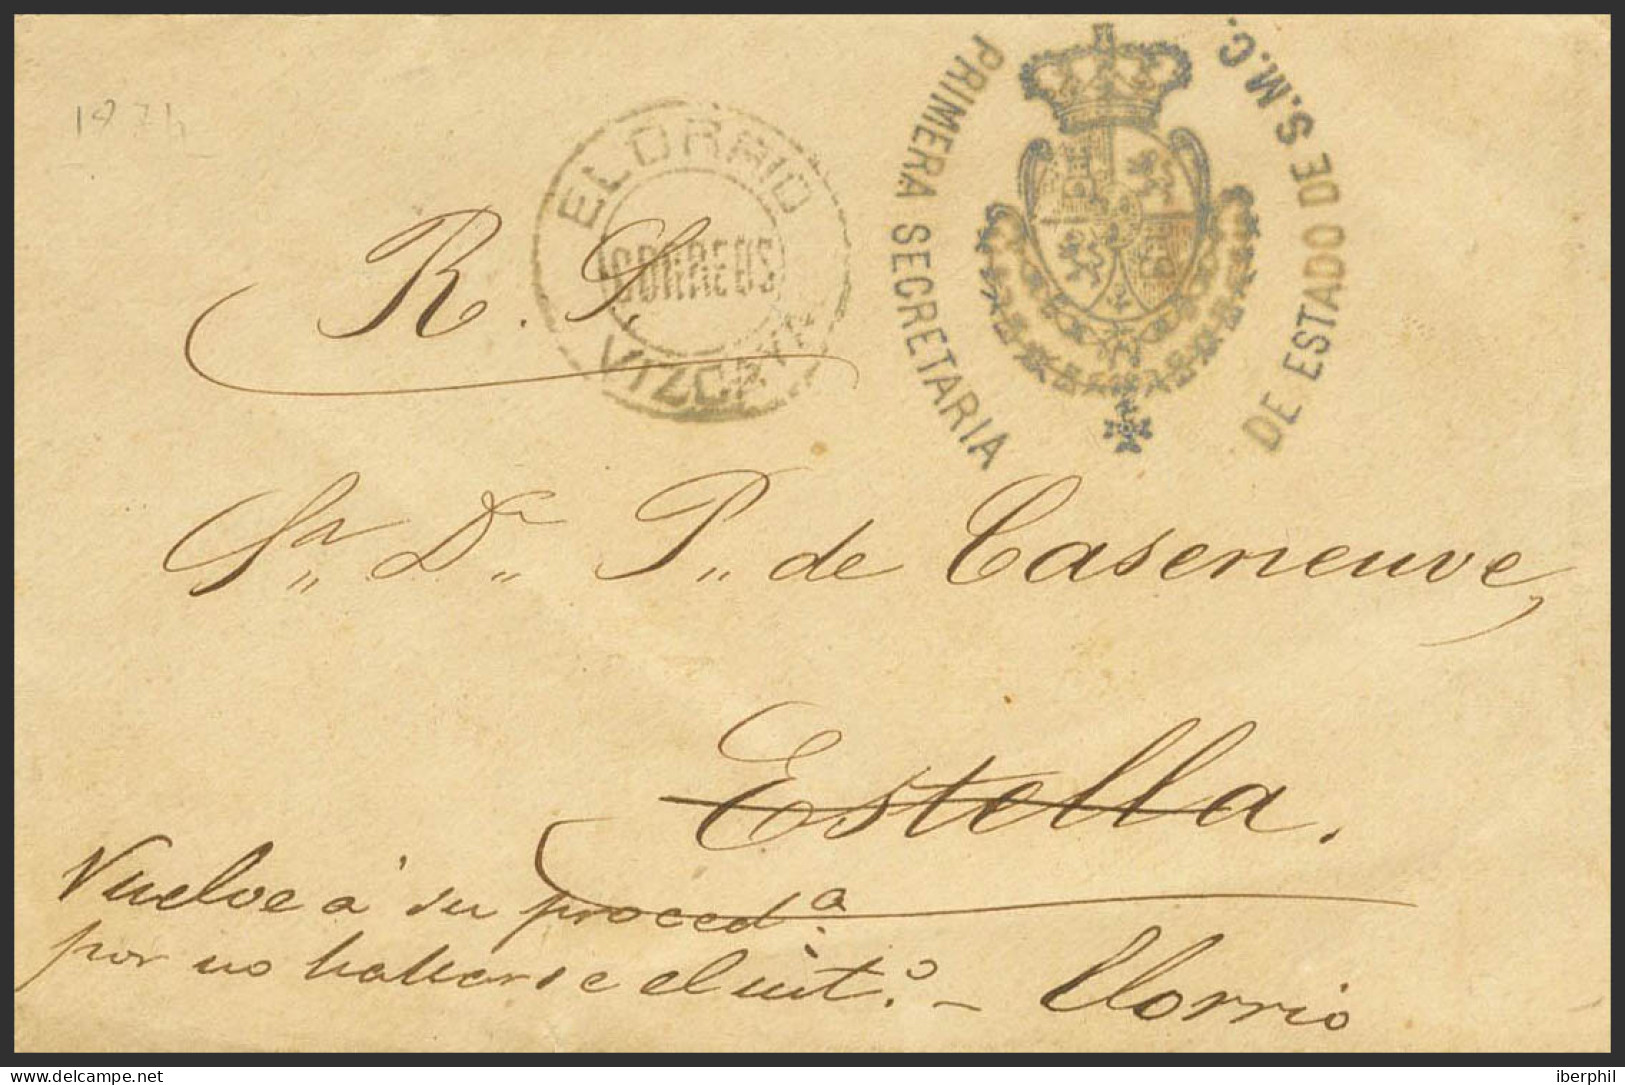 1874
PRIMERA SECRETARIA
DE ESTADO DE S.M.C.
ELORRIO
CORREOS
VIZCAYA
R. S.
Sr. Dn. P. de Caseneuve,
Estella.
Vuelve á su proceda.
por no hallarse el int.o - Elorrio
delcampe.net
iberphil